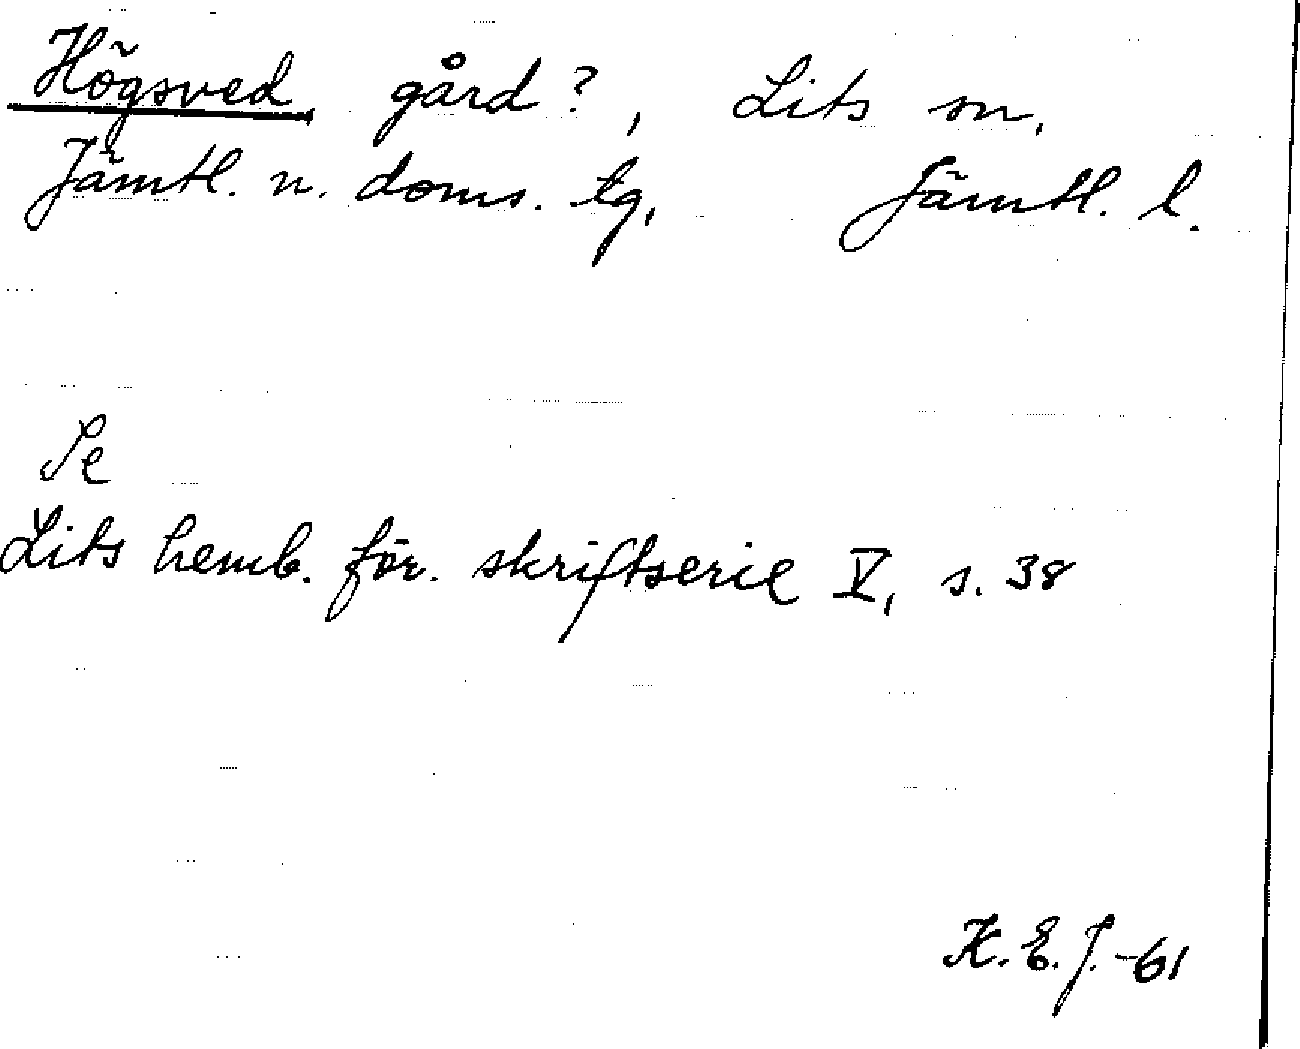 Högsved, gård?, Lits sn,
Jämtl. n. doms. tg, Jämtl. l.
Se
Lits hemb. för. skriftserie V, s. 38
K. E. J. -61